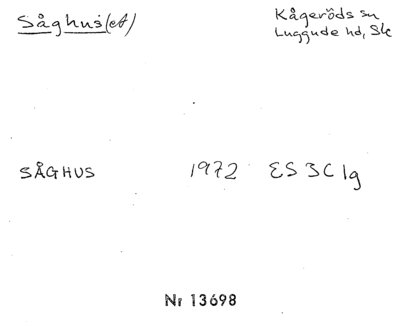 Såghus(et)
Kågeröds sn
Luggude hd, Sk
SÅGHUS 1972 ES 3C 1g
Nr 13698